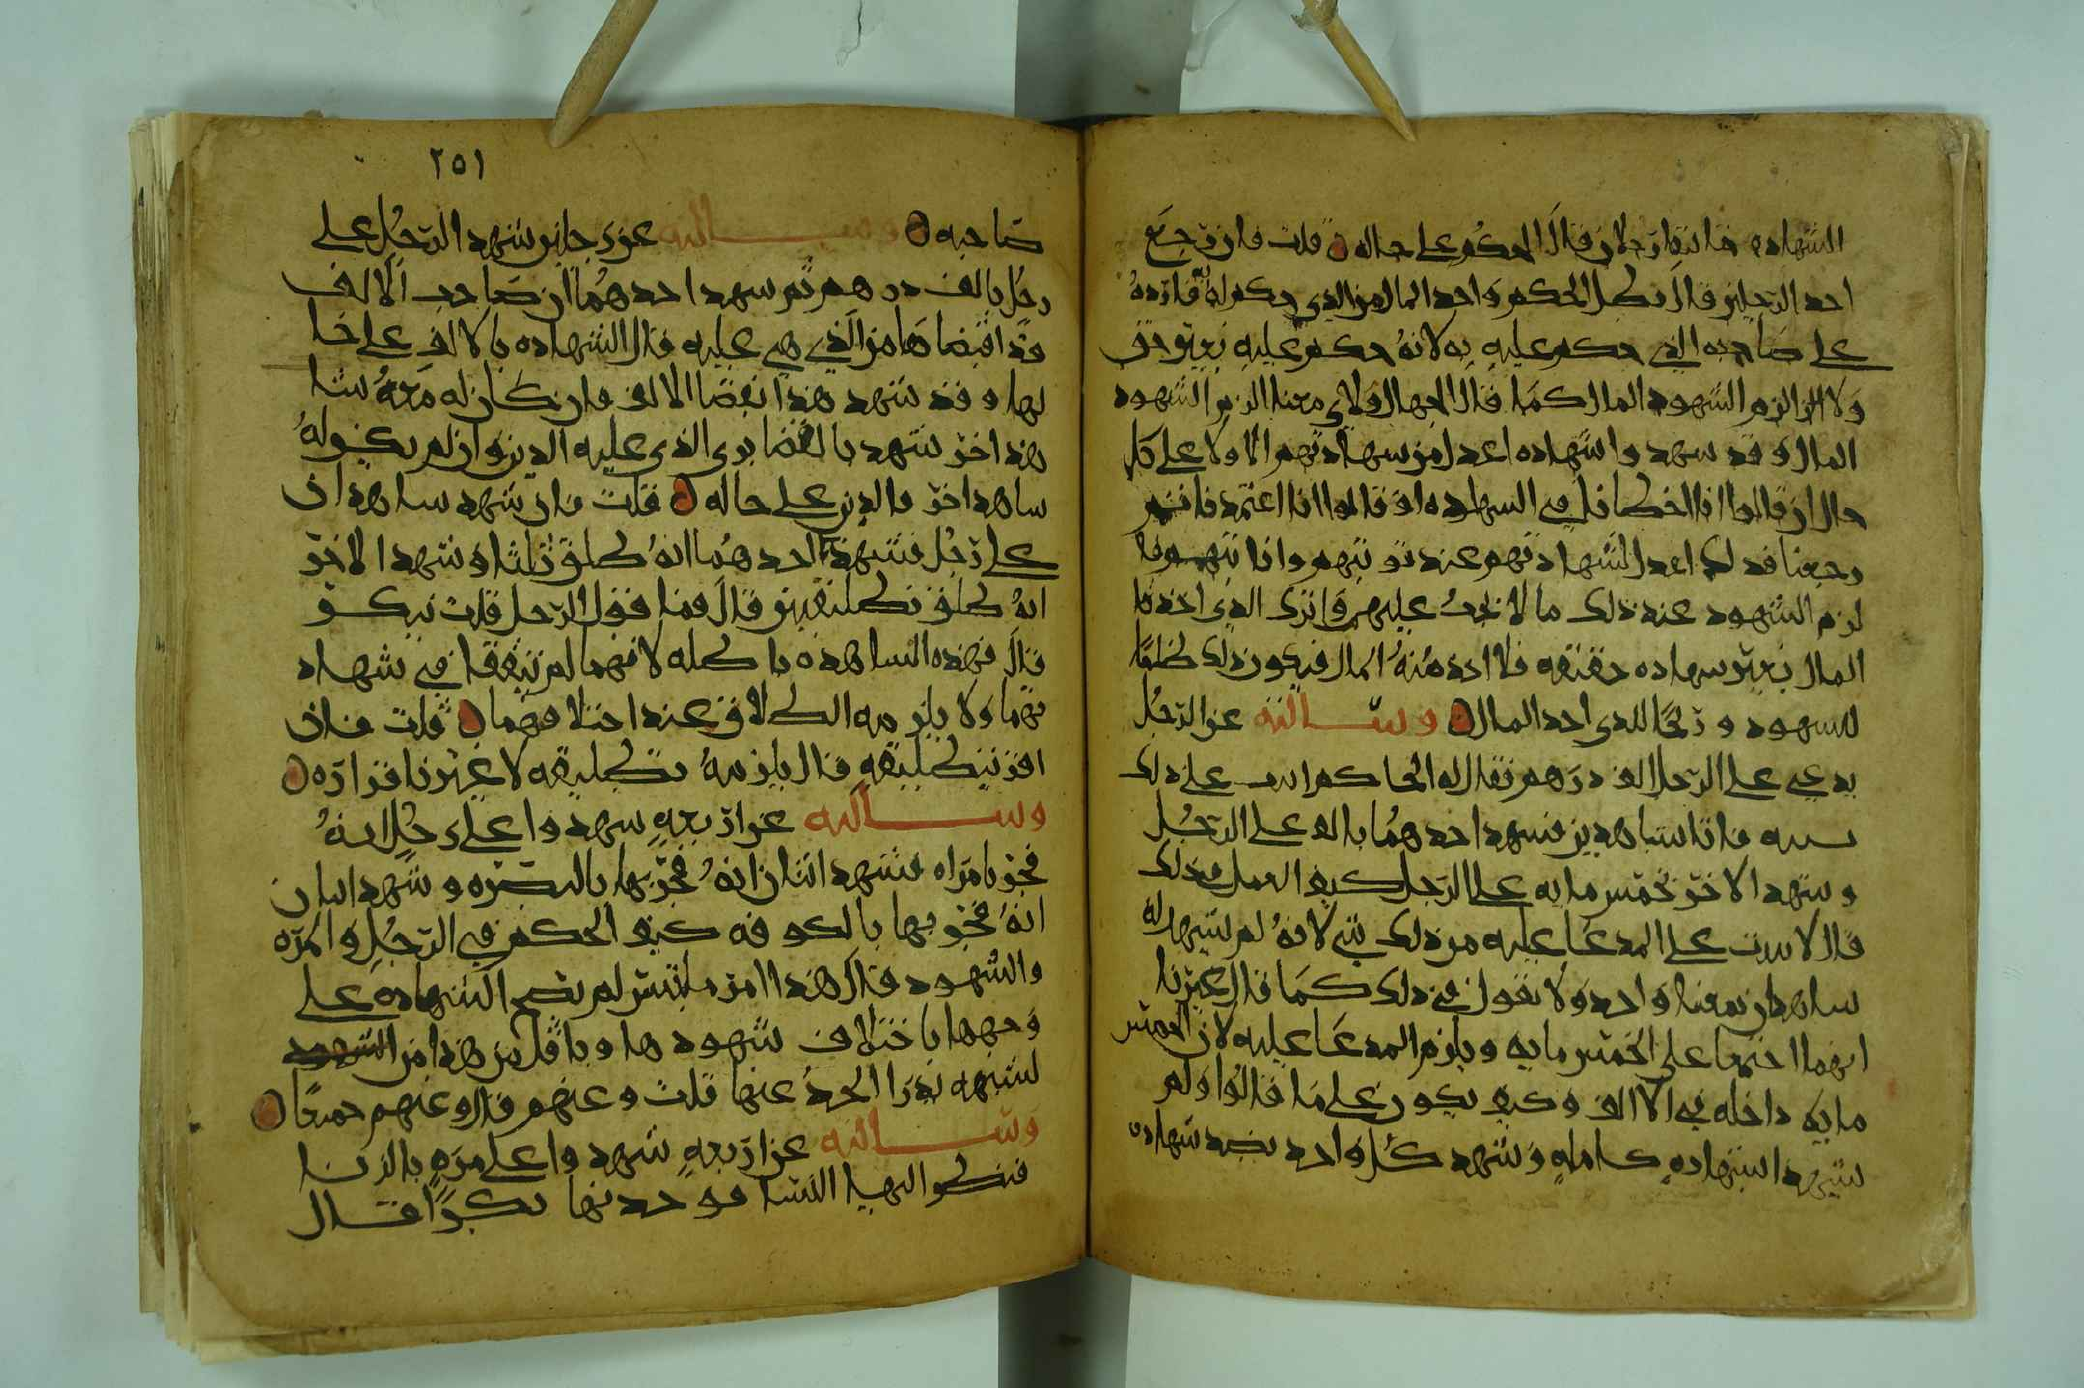 الشهاده فاسقان رجلان قال الحكم على حاله قلت فان رجع
احد الرجلين قال بطل الحكم واخذ المال من الذي حكم له به فارده
على صاحبه الذي حكم عليه به لانه حكم عليه بغير حق
ولا الزم الشهود المال كما قال الجهال ولاي معنا الزم الشهود
المال وقد شهدوا شهاده اعدل من شهادتهم الاولا على كل
حال ان قالوا انا اخطانا في الشهاده او قالوا انا اعتمدنا ثم
رجعنا فذلك اعدل الشهادتهم عند توبتهم وانا
لزم الشهود عنده ذلك ما لا يجب عليهم واترك الذي اخذ
المال بغير شهاده حقيقه فلا اخذ منه المال فيكون ذلك ظلما
للشهود وربحا للذي اخذ المال وسالته عن الرجل
يدعي على الرجل الف درهم فقال له الحاكم اثبت على ذلك
بينه فاتا بشاهدين فشهد احدهما بالف على الرجل
وشهد الاخر بخمس مايه على الرجل كيف العمل في ذلك
قال لا يثبت على المدعا عليه من ذلك شي لانه لم يشهد له
شاهدان بمعنا واحد ولا نقول في ذلك كما قال غيرنا
انهما اجتمعا على الخمس مايه ويلزم المدعا عليه لان الخمس
مايه داخله في الالف وكيف يكون على ما قالوا ولم
يشهدا بشهاده كامله وشهد كل واحد بضد شهاده
٢٥١
صاحبه وسالته عن رجلين شهد الرجل على
رجل بالف درهم ثم شهد احدهما ان صاحب الالف
قد اقتضاها من الذي هي عليه قال الشهاده بالالف على حا
لها وقد شهد هذا بقضا الالف فان كان له معه شا
هد اخر شهد بالقضا بري الذي عليه الدين وان لم يكن له
شاهد اخر فالدين على حاله قلت فان شهد شاهدان
على رجل فشهد احدهما انه طلق ثلثا وشهد الاخر
انه طلق تطليقتين قال فما قول الرجل قلت ينكر
قال فهذه الشاهده باطله لانهما لم يتفقا في شهاد
تهما ولا يلزمه الطلاق عند اختلافهما قلت فان
اقر بتطليقه قال يلزمه تطليقه لا غير باقراره
وسالته عن اربعه شهدوا على رجل انه
فجر بامراه فشهد اثنان انه فجر بها بالبصره وشهد اثنان
انه فجر بها بالكوفه كيف الحكم في الرجل والمره
والشهود قال هذا امر ملتبس لم تصح الشهاده على
وجهها باختلاف شهودها وباقل من هذا من
لشبهه يدرا الحد عنها قلت وعنهم قال وعنهم جميعا
وسالته عن اربعه شهدوا على مره بالزنا
فنظر اليها النسا فوجدنها بكرا قال